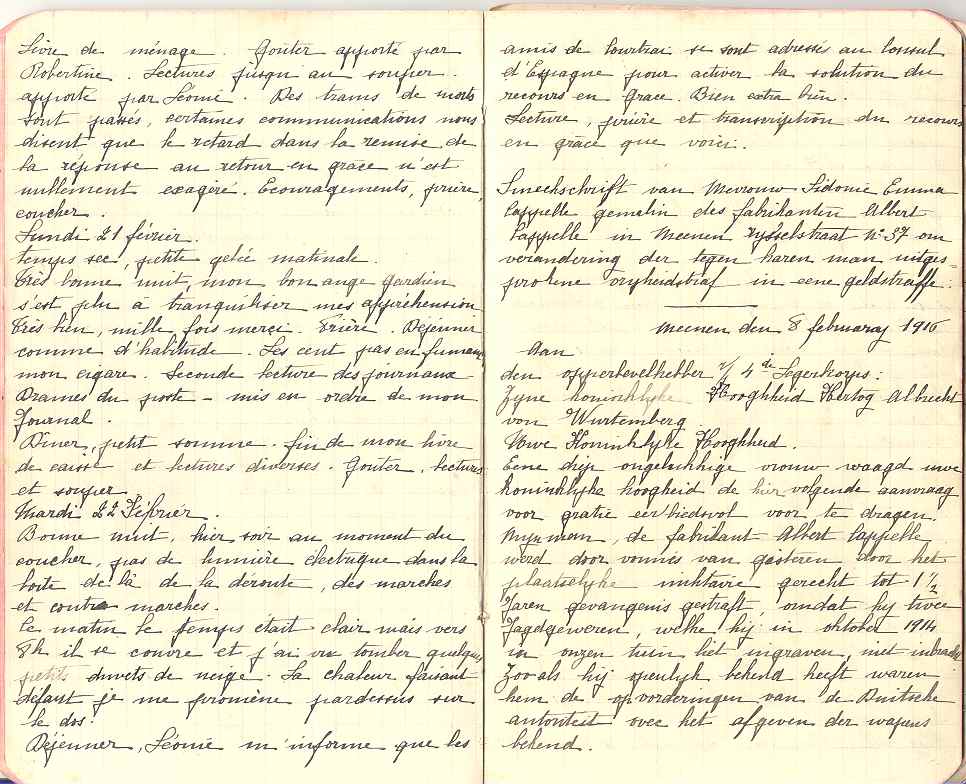 Livre de ménage. Goûter apporté par
Robertine. Lectures jusqu'au souper.
apporté par Léonie. Des trams de morts
sont passés, certaines communications nous
disent que le retard dans la remise de
la réponse au retour en grace n'est
nullement exagéré. Ecouragements, prière,
coucher.
Lundi 21 février.
temps sec, petite gelée matinale.
Très bonne nuit, mon bon ange gardien
s'est plu à tranquiliser mes appréhension
très bien, mille fois merci. Prière. Déjeuner
comme d'habitude. Les cent pas en fumant
mon cigare. Seconde lecture des journaux
Drames du poste - mis en ordre de mon
Journal.
Dîner, petit somme. fin de mon livre
de caisse et lectures diverses. Goûter, lectures
et souper.
Mardi 22 Février.
Bonne nuit, hier soir au moment du
coucher, pas de lumière électrique dans la
boite de là de la déroute, des marches
et contre marches.
Le matin le temps était clair mais vers
8h il se couvre et j'ai vu tomber quelques
petits duvets de neige. La chaleur faisant
défaut je me promène pardessus sur
le dos.
Déjeuner, Léonie m'informe que les
amis de Courtrai se sont adressés au Consul
d'Espagne pour activer la solution du
recours en grace. Bien extra bien.
Lecture, prière et transcription du recours
en grâce que voici.
Smeekschrift van Mevrouw Sidonie Emma
Cappelle gemelin des fabrikanten Albert
Cappelle in Meenen Rysselstraat N° 37 om
verandering der tegen haren man uitges-
prokene vryheidstraf in eene geldstraffe.
Meenen den 8 february 1916
Aan
den opperbevelhebber v/ 4de Legerkorps:
Zyne koninklyke Hoogheid Hertog Albrecht
von Wurtemberg
Uwe Koninklyke Hoogheid.
Eene diep ongelukkige vrouw waagd uwe
koninklyke hoogheid de hier volgende aanvraag
voor gratie eerbiedsvol voor te dragen.
Myn man, de fabrikant Albert Cappelle
werd door vonnis van gisteren door het
plaatselyke militaire gerecht tot 1 1/2
Jaren gevangenis gestraft, omdat hy twee
Jagdgeweren, welke hij in oktober 1914
in onzen tuin het ingraven, niet inbracht
Zooals hij openlyk bekend heeft waren
hem de opvorderingen van de Duitsche
autoriteit over het afgeven der wapens
bekend.